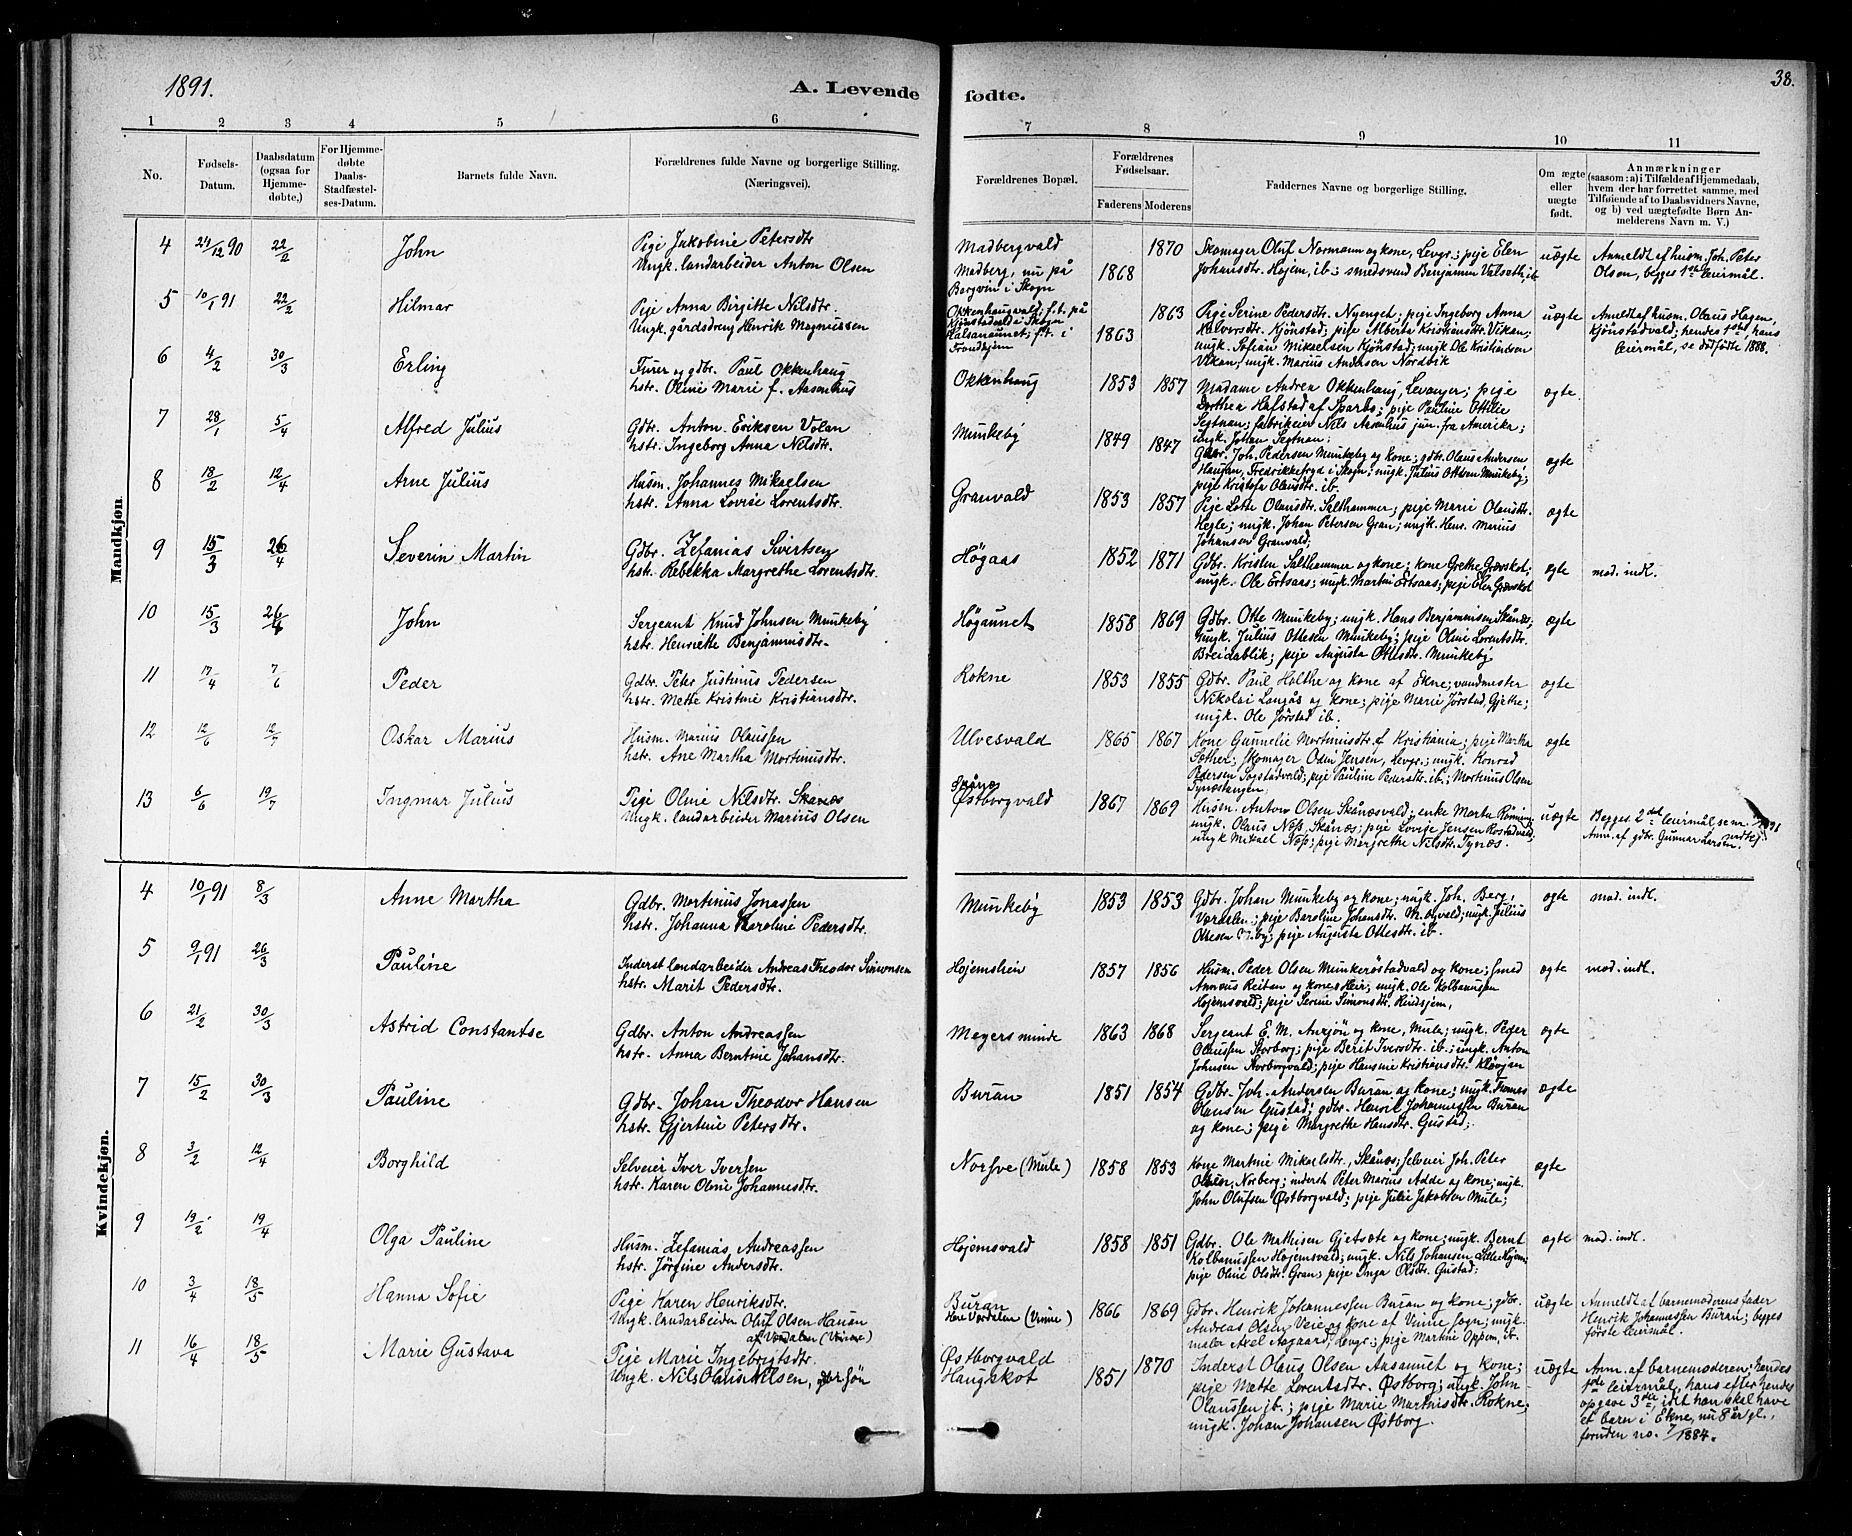 1891.
A. Levende
fødte.
38.
1 2 3 4 5 6 7 8 9 10 11
No.
Fødsels-
Datum.
Daabsdatum
(ogsaa for
Hjemme-
døbte,)
For Hjemme-
døbte
Daabs-
Stadfæstel-
ses-Datum.
Barnets fulde Navn.
Forældrenes fulde Navne og borgerlige Stilling.
(Næringsvei).
Forældrenes Bopæl.
Forældrenes
Fødselsaar.
Faderens Moderens
Faddernes Navne og borgerlige Stilling.
Om ægte
eller
uægte
født.
Anmærkninger
(saasom: a) i Tilfælde af Hjemmedaab,
hvem der har forrettet samme, med
Tilføiende af to Daabsvidners Navne,
og b) ved uægtefødte Børn An-
melderens Navn m. V.)
Mandkjøn.
4 24/12 90 22/2 John
Pige Jakobine Petersdtr
Ungk. landarbeider Anton Olsen
Madbergvald
Madberg, nu på
Borgvin i Skogn
1868 1870
Skomager Oluf Normann og kone, Levgr.; pige Elen
Johansdtr. Højem, ib.; smedsvend Benjamin Valseth, ib
uægte
Anmeldt af husm. Joh. Peter
Olsen, begges 1ste leiermål.
5 10/1 91 22/2 Hilmar
Pige Anna Birgitte Nilsdtr.
Ungk. gårdsdreng Henrik Magnussen
Okkenhaugvald; f.t. på
Kjønstadeld i Skogn
Halsanaunet; f.t. i
Trondhjem
1863 1863
Pige Serine Pedersdtr. Nyenget; pige Ingeborg Anna
Halvorsdtr. Kjönstad; pige Alberta Kristiansdtr. Vikan;
ungk. Sofian Mikaelsen Kjönstad; ungk. Ole Kristiansen
Vikan, ungk. Marius Andersen Nordvik
uægte
Anmeldt af husm. Olaus Hagen,
Kjönstadvald; hendes 1ste, hans
leiermål, se dødfødte 1888.
6 4/2 30/3 Erling
Furer og gdbr. Paul Okkenhaug
hstr. Oline Marie f. Aasenhus
Okkenhaug
1853 1857
Madame Andrea Okkenhaug, Levanger; pige
Dorthea Hafstad af Sparbo; pige Pauline Ottilie
Segtnan; fabrikeier Nils Aasenhus jun. fra Amerika;
ungk. Johan Segtnan;
ægte.
7 28/1 5/4 Alfred Julius
Gdbr. Anton Eriksen Volan
hstr. Ingeborg Anna Nilsdtr.
Munkeby
1849 1847
Gdbr. Joh. Pedersen Munkeby og kone; gdbr. Olaus Andersen
Haugan, Fredrikkefryd i Skogn; ungk. Julius Ottesen Munkeby;
pige Kristofa Olausdtr. ib.
ægte
8 18/2 12/4 Arne Julius
Husm. Johannes Mikaelsen
hstr. Anna Lovise Lorentsdtr.
Granvald
1853 1857
Pige Lotte Olausdtr. Salthammer; pige Marie Olausdtr.
Hegle; ungk. Johan Petersen Gran; ungk. Henr. Marius
Johansen Granvald;
ægte
9 15/3 26/4 Severin Martin
Gdbr. Zefanias Sivertsen
hstr. Rebekka Margrethe Lorentsdtr.
Högaas
1852 1871
Gdbr. Kristen Salthammer og kone; kone Grethe Grævskot;
ungk. Ole Ertsaas; ungk. Martin Ertsaas; pige Elen Grævskot
ægte
mod. indl.
10 15/3 26/4 John
Sergeant Knud Johnsen Munkeby
hstr. Henriette Benjaminsdtr.
Högaunet
1858 1869
Gdbr. Otte Munkeby; ungk. Hans Benjaminsen Skånes;
ungk. Julius Ottesen Munkeby; pige Oline Lorentsdtr.
Breidablik; pige Augusta Ottesdtr. Munkeby
ægte
11 17/4 7/6 Peder
Gdbr. Peter Justinus Pedersen
hstr. Mette Kristine Kristiansdtr.
Rokne
1853 1855
Gdbr. Paul Holthe og kone af Ekne; vandmester
Nikolai Langås og kone; pige Marie Jörstad, Gjethe;
ungk. Ole Jörstad ib.
ægte
12 12/6 12/7 Oskar Marius
Husm. Marius Olaussen
hstr. Ane Martha Mortinusdtr.
Ulvesvald
1865 1867
Kone Gunnelie Mortinusdtr. af Kristiania; pige Martha
Sæther; skomager Odin Jensen, Levgr.; ungk. Konrad
Pedersen Sogstadvald; pige Pauline Pedersdtr. ib.; Mortinus Olsen
Tynæstangen
ægte
13 6/6 19/7 Ingmar Julius
Pige Oline Nilsdtr. Skånes
Ungk. landarbeider Marius Olsen
Skånæs
Østborgvald
1867 1869
Husm. Anton Olsen Skånæsvald; enke Marta Rönning
ungk. Olaus Næss, Skånæs; pige Lovise Jensen Rostadvald,
ungk Mikael Næss; pige Margrethe Nilsdtr. Tynæs.
uægte
Begges 2det leiermål se nr. 1/1891
Anm. af gdbr. Gunnar Larsen.
Kvindekjøn.
4 10/1 91 8/3 Anne Martha
Gdbr. Mortinus Jonassen
hstr. Johanna Karoline Pedersdtr.
Munkeby
1853 1853
Gdbr. Johan Munkeby og kone; ungk. Joh. Berg,
Værdalen; pige Baroline Johansdtr. Th. ogvald; ungk. Julius
Ottesen M.by; pige Augusta Ottesdtr. ib.
ægte
mod. indl.
5 9/1 91 26/3 Pauline
Inderst landarbeider Andreas Theodor Simonsen
hstr. Marit Pedersdtr.
Højemshein
1857 1856
Husm. Peder Olsen Munkerøstadvald og kone; smed
Annæus Reitan og kone; ungk. Ole Kolbanussen
Højemsvald; pige Serine Simonsdtr. Rindsjem,
ægte
mod. indl.
6 21/2 30/3 Astrid Constantse
Gdbr. Anton Andreassen
hstr. Anna Berntine Johansdtr.
Meyersminde
1863 1868
Sergeant E. M. Auxjön og kone, Mule; ungk. Peder
Olaussen Storborg; pige Berit Iversdtr. ib.; ungk. Anton
Johnsen Norborgvald; pige Hansine Kristiansdtr. Klövjan
ægte
7 15/2 30/3 Pauline
Gdbr. Johan Theodor Hansen
hstr. Gjertine Petersdtr.
Buran
1851 1854
Gdbr. Joh. Andersen Buran og kone; ungk. Tomas
Hansen Gustad; gdbr. Henrik Johannessen Buran
og kone; pige Margrethe Hansdtr. Gustad;
ægte
8 3/2 12/4 Borghild
Selveier Iver Iversen
hstr. Karen Oline Johannesdtr.
Norsve (Mule)
1858 1853
Kone Martine Mikaelsdtr., Skånes; selveier Joh. Peter
Olsen, Norberg; inderst Peter Marius Adde og kone; ungk.
John Olufsen Østborgvald; pige Julie Jakobsen Mule;
ægte
9 19/2 19/4 Olga Pauline
Husm. Zefanias Andreassen
hstr. Jörgine Andersdtr.
Højemsvald
1858 1851
Gdbr. Ole Mathisen Gjetsæte og kone; ungk. Bernt
Kolbanussen Højemsvald; ungk. Nils Johansen Lillehojem
pige Oline Olsdtr. Gran; pige Inga Olsdtr. Gustad;
ægte
mod. indl.
10 3/4 18/5 Hanna Sofie
Pige Karen Henriksdtr.
Ungk. landarbeider Oluf Olsen Hauan
af Værdalen (Vinne)
Buran
Værdalen (Vinne)
1866 1869
Gdbr. Henrik Johannessen Buran og kone; gdbr.
Andreas Olsen Veie og kone af Vinne sogn; ungk.
maler Axel Aagaard, Levgr.; pige Martine Oppem, ib.
uægte
Anmeldt af barnemoderens fader
Henrik Johannessen Buran; begges
første leiermål.
11 16/4 18/5 Marie Gustava
Pige Marie Ingebrigtsdtr.
Ungk. Nils Olaus Nilsen, gbr. søn
Østborgvald
Haugskot
1851 1870
Inderst Olaus Olsen Aasaunet og kone;
pige Mætte Lorentsdtr. Østborg; ungk. John
Olaussen ib.; pige Marie Martinsdtr. Rokne;
ungk. Johan Johansen Østborg.
uægte
Anm. af barnemoderen; hendes
1ste leiermål, hans efter hendes
opgave 3die, idet han skal have
et barn i Ekne, nu 8 år gl.,
foruden no. 7/1884.